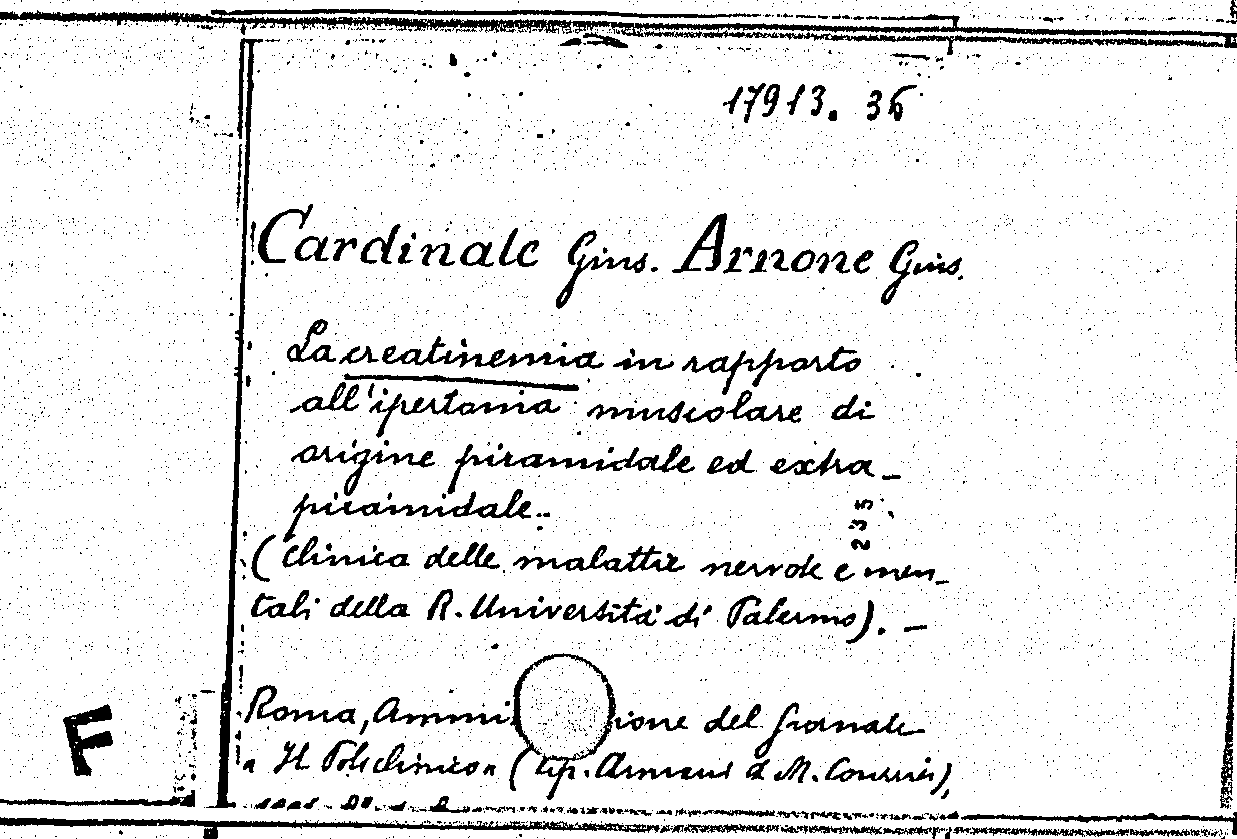 17913. 36
Cardinale Gius. Arnone Gius.
La creatinemia in rapporto
all'ipertonia muscolare di
origine piramidale ed extra-
piramidale.
235
(Clinica delle malattie nervose e men-
tali della R. Università di Palermo). -
Roma, Ammi ione del Giornale
"Il Policlinico" (tip. Armani d M. Courrier),
F